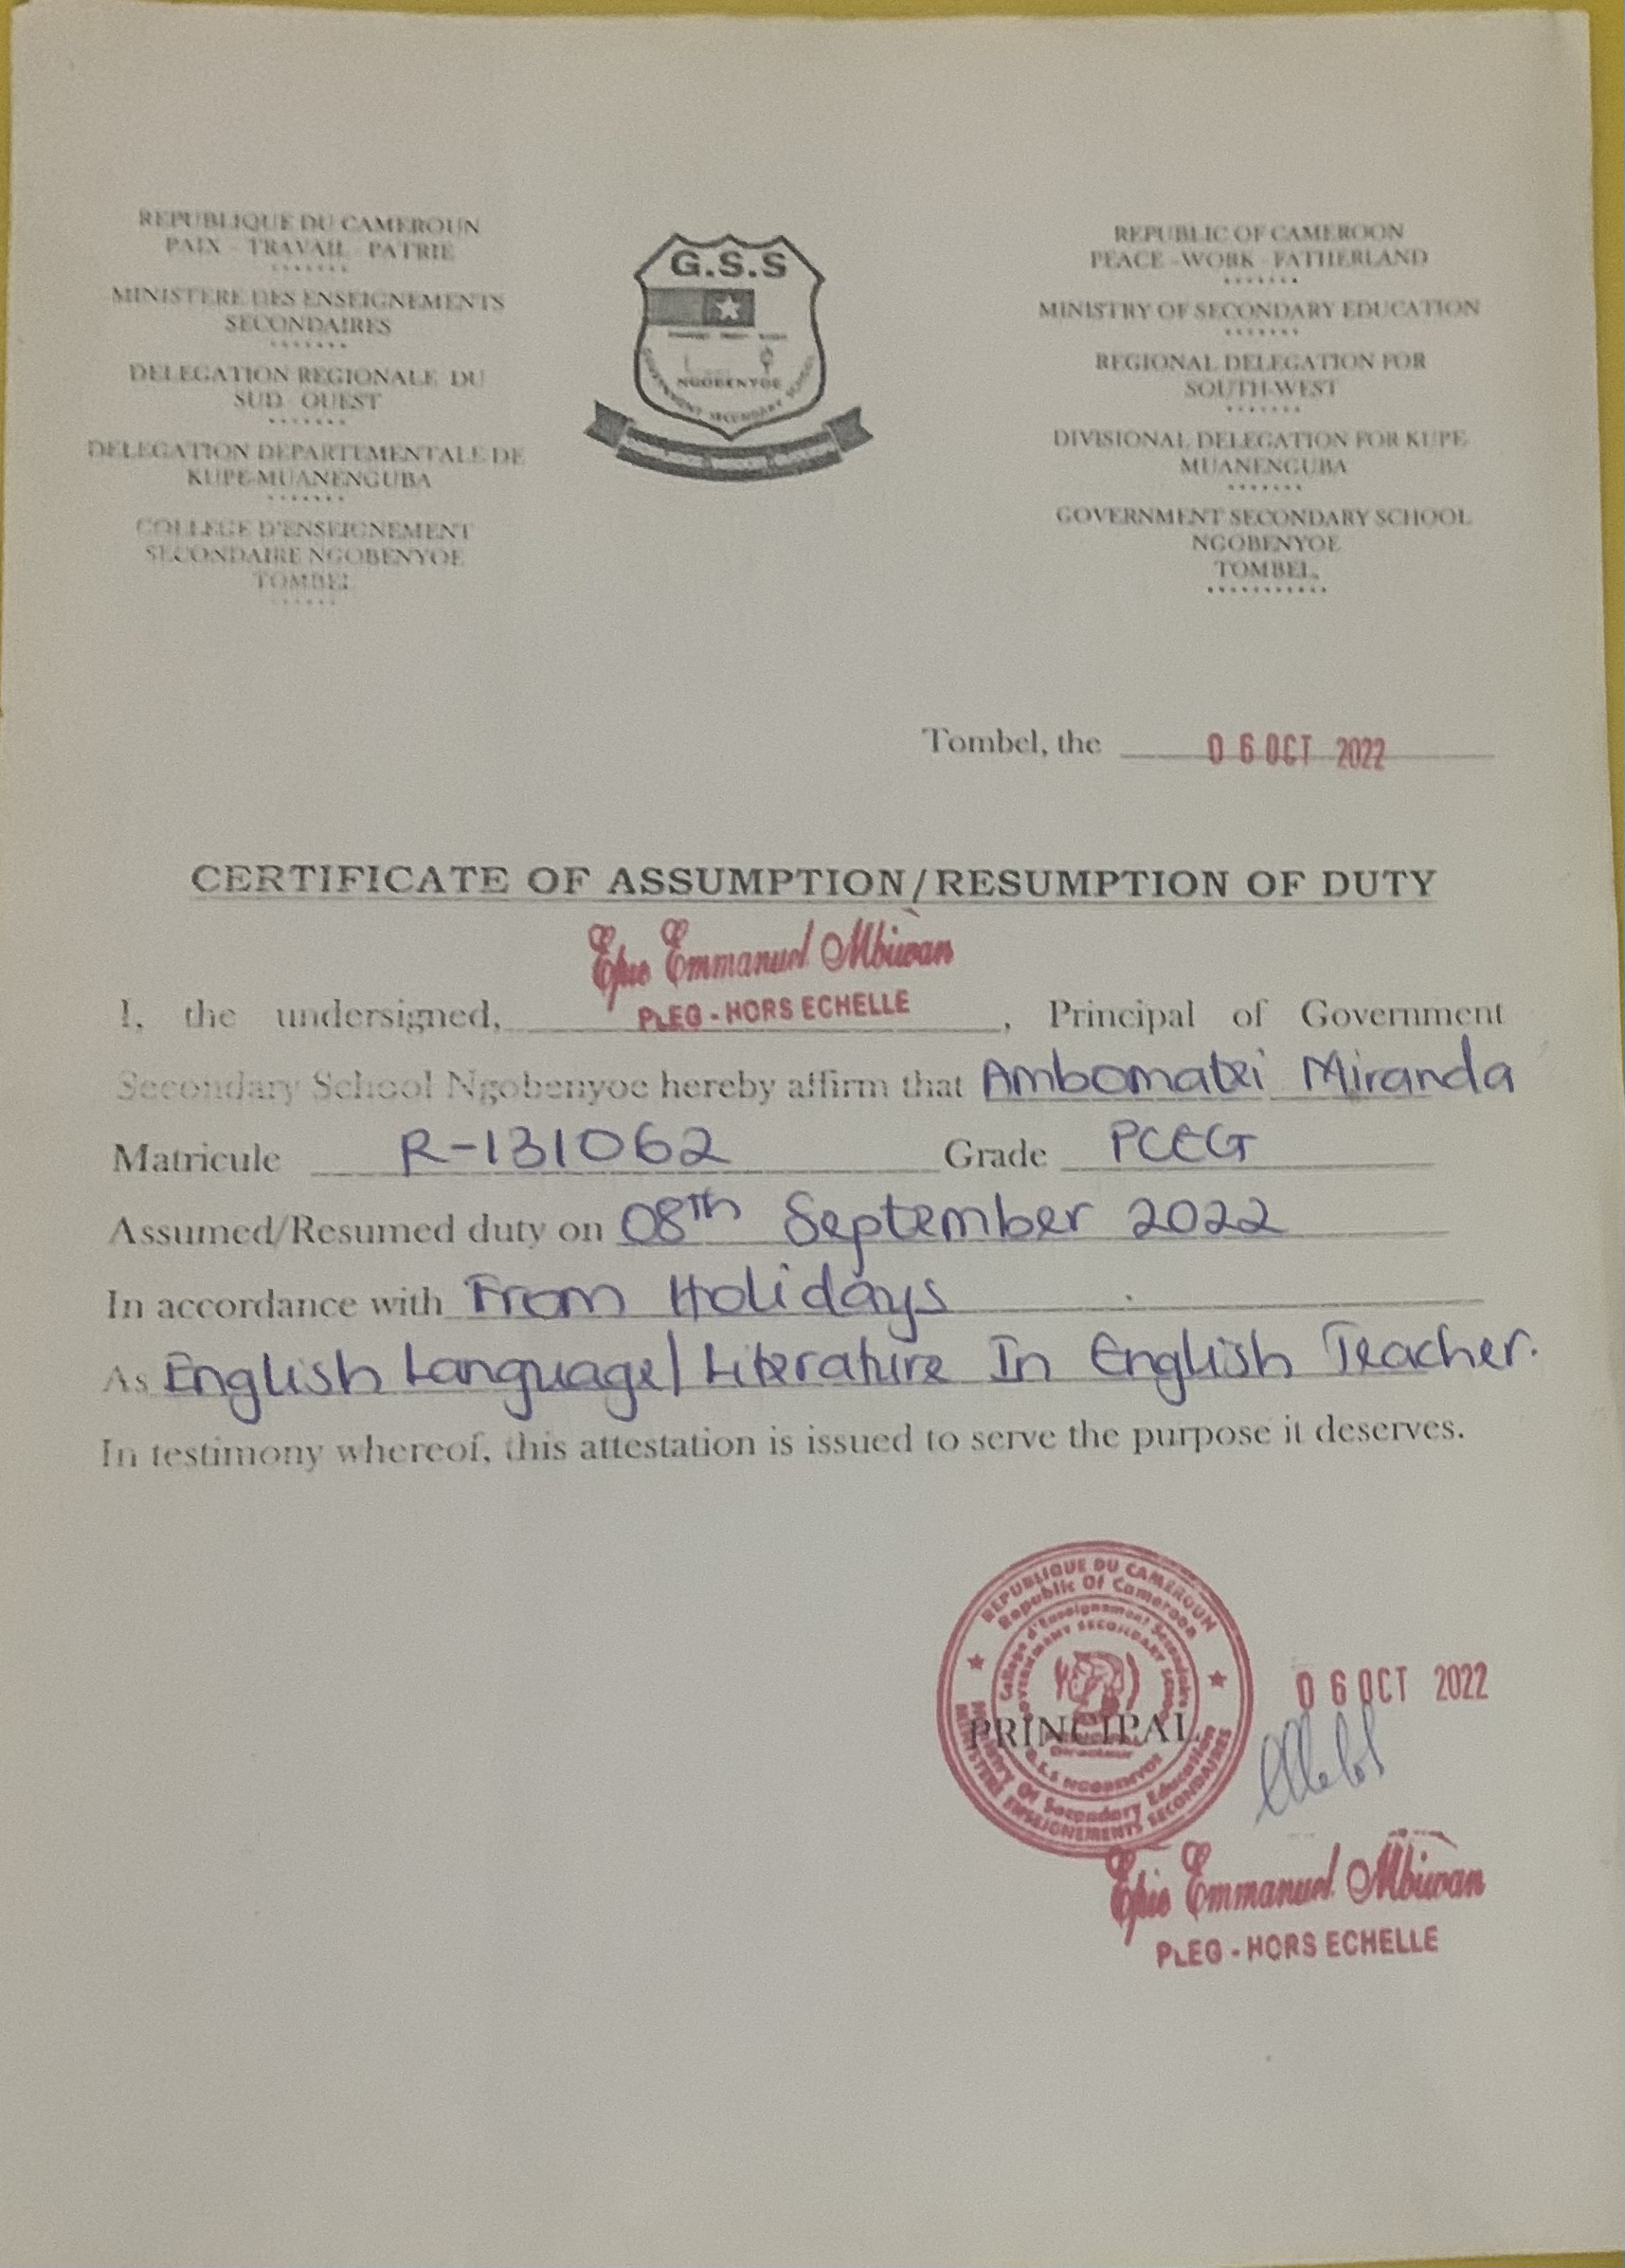 REPUBLIQUE DU CAMEROUN
PAIX - TRAVAIL - PATRIE
MINISTERE DES ENSEIGNEMENTS
SECONDAIRES
DELEGATION REGIONALE DU
SUD OUEST
DELEGATION DEPARTEMENTALE DE
KUPE-MUANENGUBA
COLLEGE D'ENSEIGNEMENT
SECONDAIRE NGOBENYOE
TOMBEL
G.S.S
NGOBENYOE
GOVERNMENT SECONDARY SCHOOL
REPUBLIC OF CAMEROON
PEACE - WORK - FATHERLAND
MINISTRY OF SECONDARY EDUCATION
REGIONAL DELEGATION FOR
SOUTH-WEST
DIVISIONAL DELEGATION FOR KUPE
MUANENGUBA
GOVERNMENT SECONDARY SCHOOL
NGOBENYOE
TOMBEL
Tombel, the 06 OCT 2022
CERTIFICATE OF ASSUMPTION/RESUMPTION OF DUTY
Epie Emmanuel Mbiwan
PLEG - HORS ECHELLE
I, the undersigned, , Principal of Government
Secondary School Ngobenyoe hereby affirm that Ambomatei Miranda
Matricule R-131062 Grade PCEG
Assumed/Resumed duty on 08th September 2022
In accordance with From Holidays
As English Language/ Literature In English Teacher.
In testimony whereof, this attestation is issued to serve the purpose it deserves.
REPUBLIQUE DU CAMEROUN
Republic Of Cameroon
College d'Enseignement Secondaire
GOVERNMENT SECONDARY SCHOOL
PRINCIPAL
Directeur
G.S.S NGOBENYOE
Ministry Of Secondary Education
MINISTERE ENSEIGNEMENTS SECONDAIRES
06 OCT 2022
Epie Emmanuel Mbiwan
PLEG - HORS ECHELLE